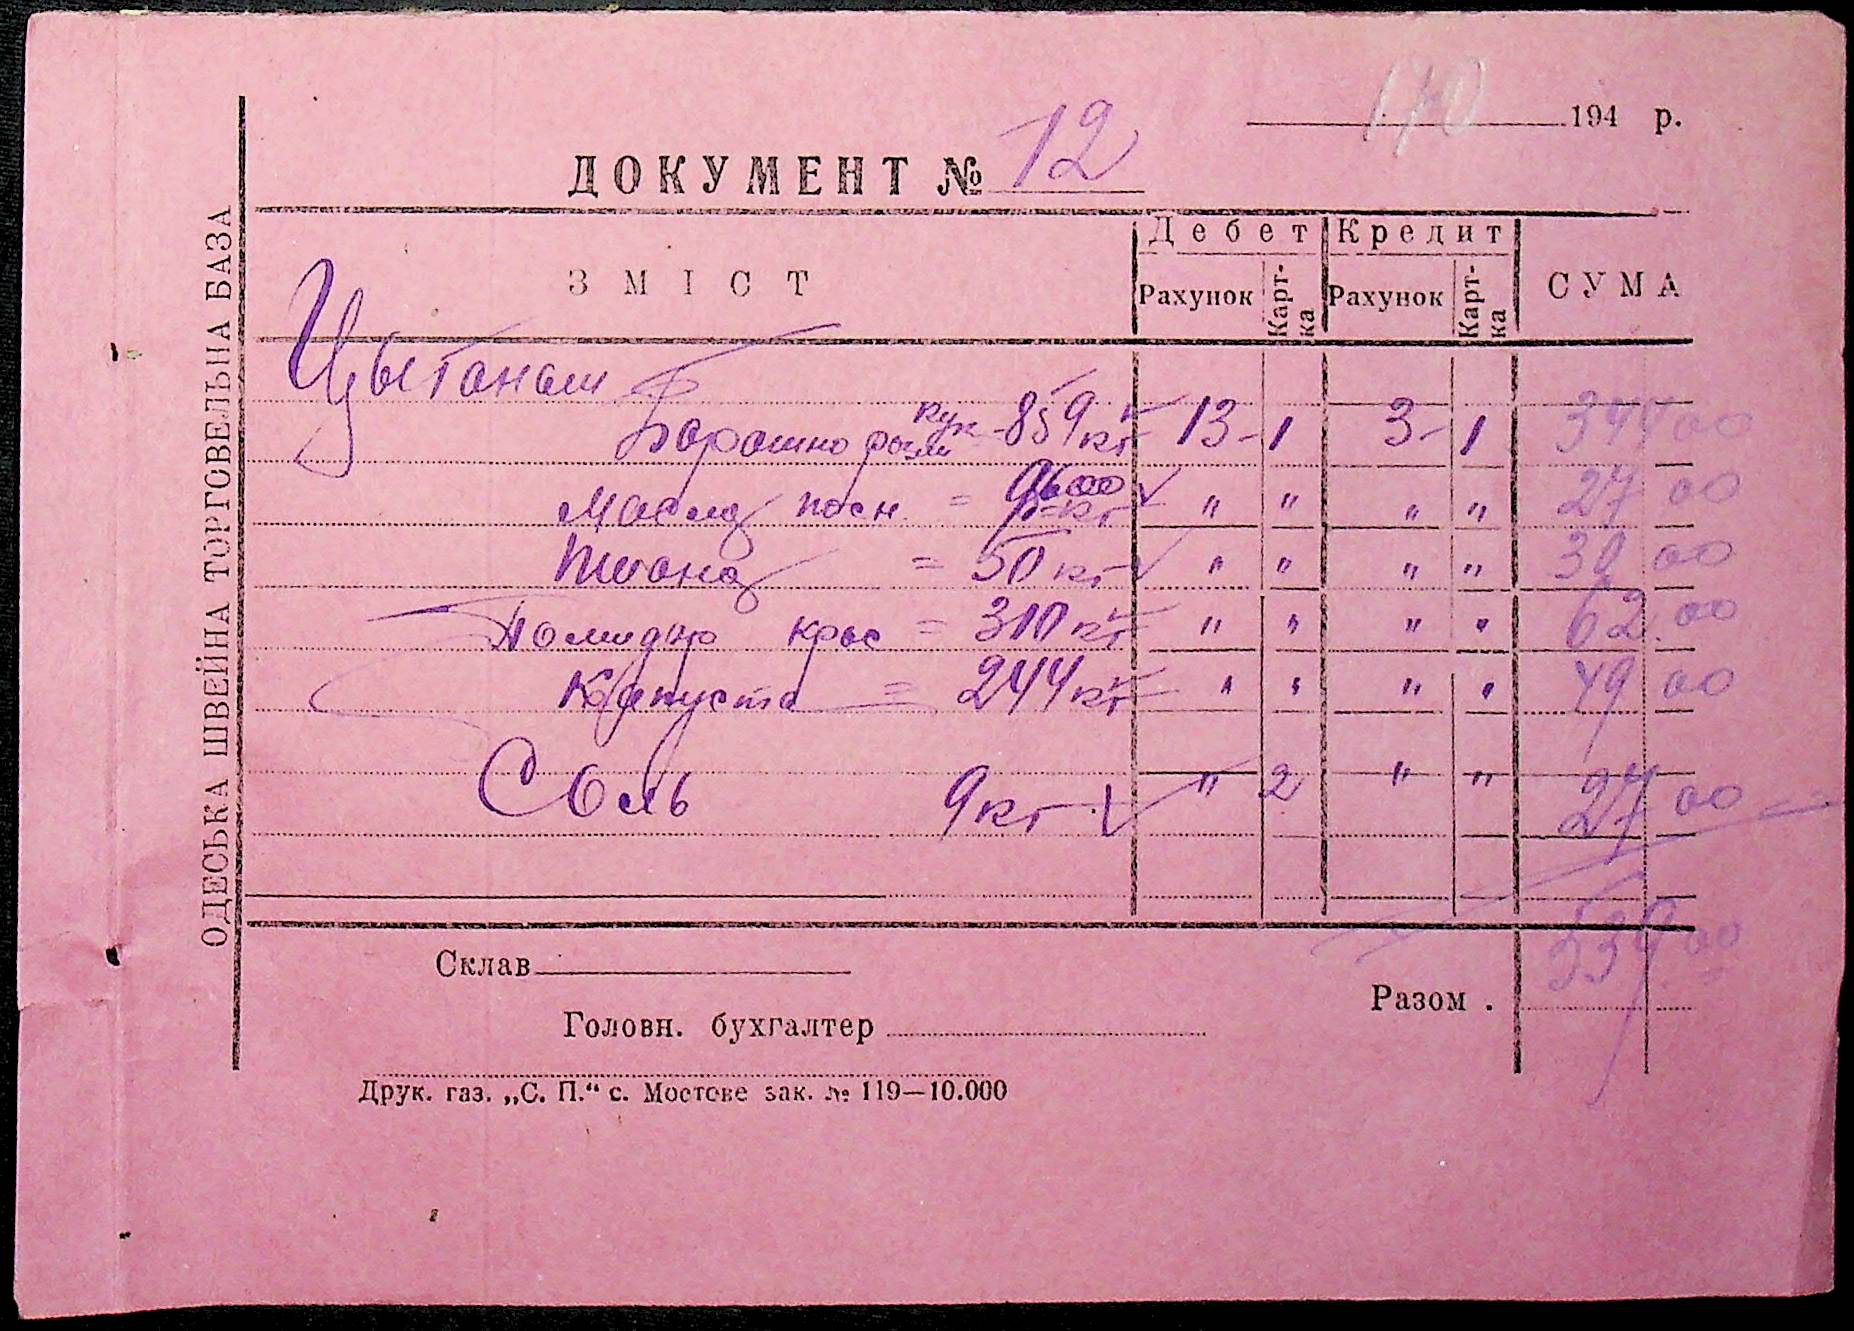 170 194 р.
ДОКУМЕНТ № 12
ОДЕСЬКА ШВЕЙНА ТОРГОВЕЛЬНА БАЗА
ЗМІСТ Дебет Кредит СУМА
Рахунок Карт-ка Рахунок Карт-ка
Цыганам
Борошно розм кук - 859 кг 13 - 1 3 - 1 344 00
Масла посн. = 9600 кг " " " " 27 00
Пшона = 50 кг " " " " 30 00
Помидор крас = 310 кг " " " " 62.00
Капуста = 244 кг " " " " 49 00
Соль 9 кг " 2 " " 27 00
539 00
Склав
Разом .
Головн. бухгалтер
Друк. газ. „С. П.“ с. Мостове зак. № 119—10.000